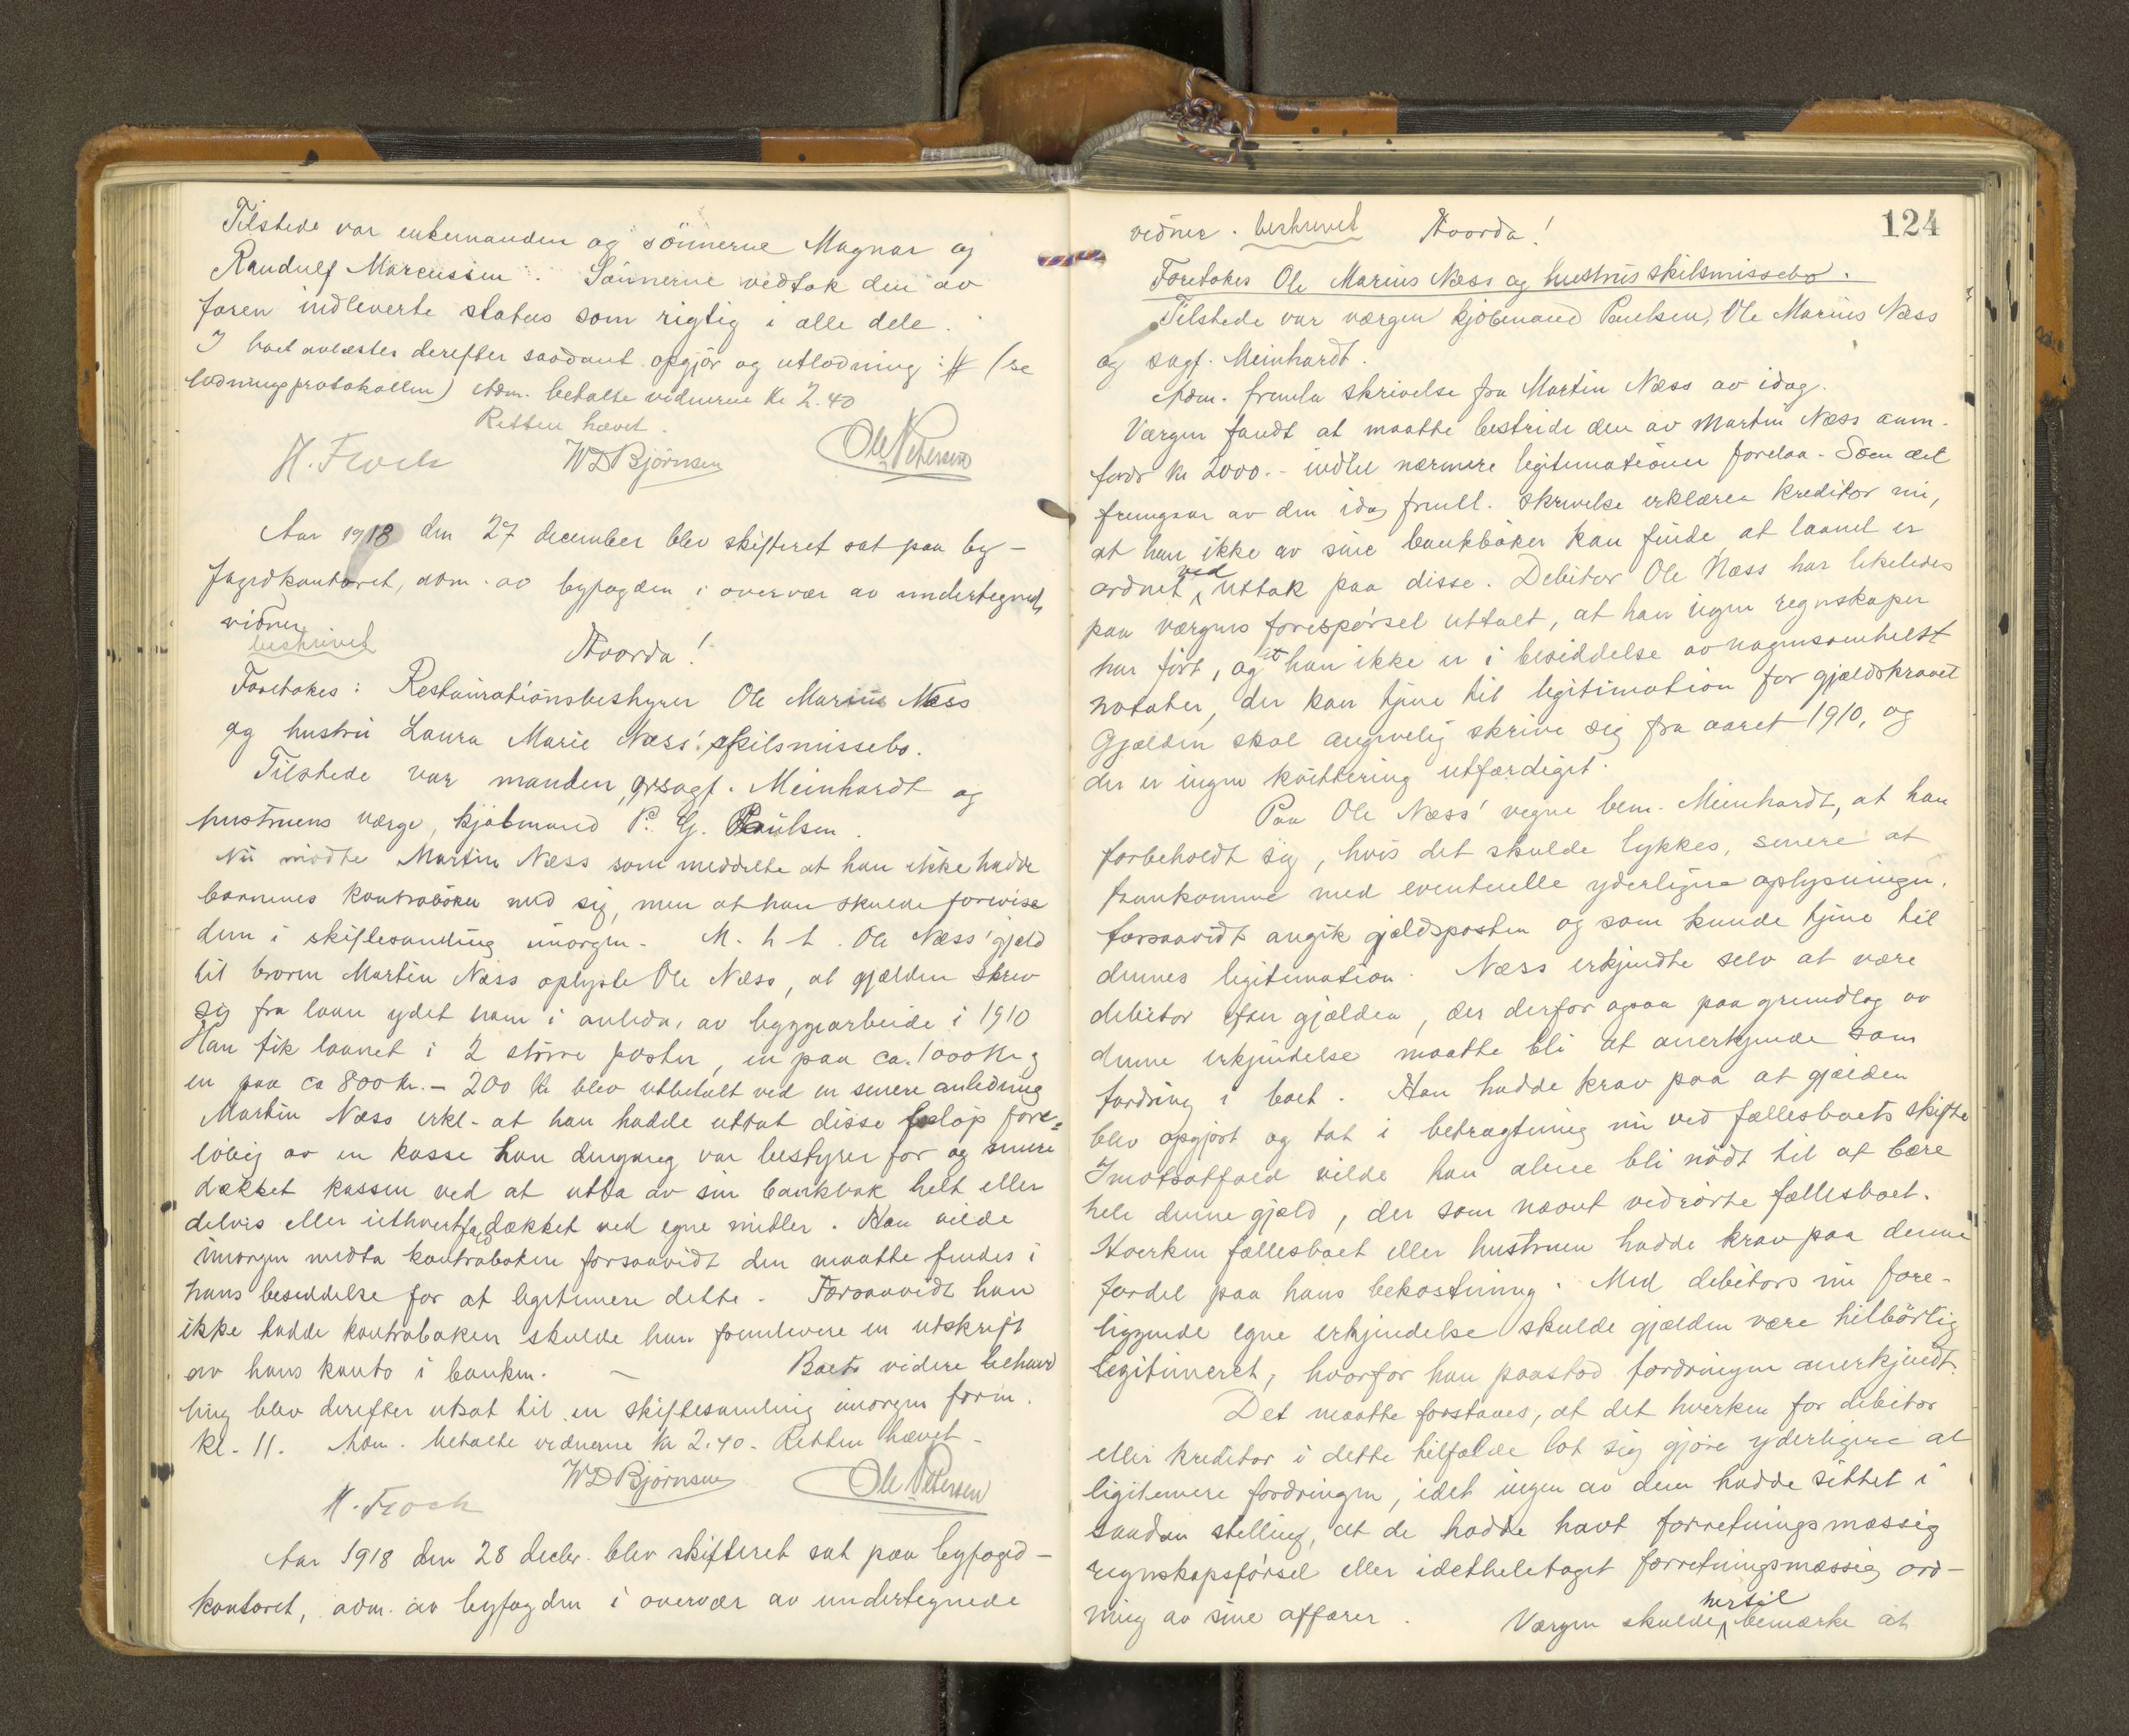 Tilstede var enkemanden og sönnerne Magnar og
Randulf Marcussen. Sönnerne vedtok den av
faren indleverte status som rigtig i alle dele.
I boet avlæstes derefter saadant opgjör og utlodning: # (se
lodningsprotokollen) Adm. betalte vidnerne kr 2.40
Retten hævet.
H. Floch WD Björnsen Ole Petersen
Aar 1918 den 27 december blev skifteret sat paa by-
fogedkontoret, adm. av byfogden i overvær av undertegnede
vidner.
beskrevet Hvorda!
Foretokes: Restaurationsbestyrer Ole Marius Næss
og hustru Laura Marie Næss' skilsmissebo.
Tilstede var manden, o.r.sagf. Meinhardt og
hustruens værge, kjöbmand P. G. Paulsen.
Nu mödte Martin Næss som meddelte at han ikke hadde
barnenes kontraböker med sig, men at han skulde forevise
dem i skiftesamling imorgen. M. h. t. Ole Næss' gjæld
til broren Martin Næss oplyste Ole Næss, at gjælden skrev
sig fra laan ydet ham i anledn. av byggearbeide i 1910
Han fik laanet i 2 större poster, en paa ca. 1000 kr og
en paa ca 800 kr. - 200 kr blev utbetalt ved en senere anledning
Martin Næss erkl. at han hadde uttat disse belöp fore-
löbig av en kasse han dengang var bestyrer for og senere
dækket kassen ved at utta av sin bankbok helt eller
delvis eller iethvertfald dækket ved egne midler. Han vilde
imorgen medta kontraboken forsaavidt den maatte findes i
hans besiddelse for at legitimere dette. Forsaavidt han
ikke hadde kontraboken skulde han fremlevere en utskrift
av hans konto i banken. - Boets videre behand
ling blev derefter utsat til en skiftesamling imorgen form.
kl. 11. Adm. betalte vidnerne kr 2.40. Retten hævet.
H. Floch WD Björnsen Ole Petersen
Aar 1918 den 28 decbr. blev skifteret sat paa byfoged-
kontoret, adm. av byfogden i overvær av undertegnede
124
vidner. beskrevet Hvorda!
Foretokes Ole Marius Næss og hustrus skilsmissebo.
Tilstede var værgen kjöbmand Paulsen, Ole Marius Næss
og sagf. Meinhardt.
Adm. fremla skrivelse fra Martin Næss av idag.
Værgen fandt at maatte bestride den av Martin Næss anm.
fordr kr 2000.- indtil nærmere legitimationer forelaa. Som det
fremgaar av den idag fremll. skrivelse erklærer kreditor nu,
at han ikke av sine bankböker kan finde at laanet er
ordnet ved uttak paa disse. Debitor Ole Næss har likeledes
paa værgens forespörsel uttalt, at han ingen regnskaper
har fört, og at han ikke er i besiddelse av nogensomhelst
notater, der kan tjene til legitimation for gjældskravet
Gjælden skal angivelig skrive sig fra aaret 1910, og
der er ingen kvittering utfærdiget.
Paa Ole Næss' vegne bem. Meinhardt, at han
forbeholdt sig, hvis det skulde lykkes, senere at
fremkomme med eventuelle yderligere oplysninger.
forsaavidt angik gjældsposten og som kunde tjene til
dennes legitimation. Næss erkjendte selv at være
debitor efter gjælden, der derfor ogsaa paa grundlag av
denne erkjendelse maatte bli at anerkjende som
fordring i boet. Han hadde krav paa at gjælden
blev opgjort og tat i betragtning nu ved fællesboets skifte
Imotsatfald vilde han alene bli nödt til at bære
hele denne gjæld, der som nævnt vedrörte fællesboet.
Hverken fællesboet eller hustruen hadde krav paa denne
fordel paa hans bekostning. Med debitors nu fore-
liggende egne erkjendelse skulde gjælden være tilbörlig
legitimeret, hvorfor han paastod fordringen anerkjendt.
Det maatte forstaaes, at det hverken for debitor
eller kreditor i dette tilfælde lot sig gjöre yderligere at
legitimere fordringen, idet ingen av dem hadde sittet i
saadan stilling, at de hadde havt forretningsmæssig
regnskapsförsel eller idetheletaget forretningsmæssig ord-
ning av sine affærer. Værgen skulde hertil bemærke at